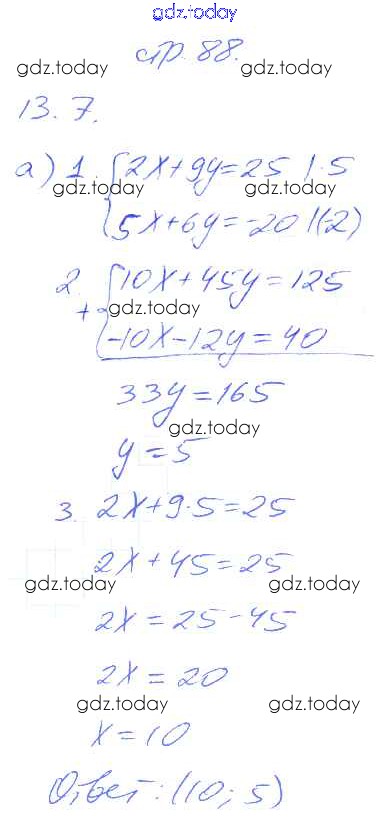 gdz.today
стр. 88.
gdz.today gdz.today
13.7.
а) 1. {2x+9y=25 |·5
gdz.today gdz.today
{5x+6y=-20 |(-2)
2. {10x+45y=125
+ gdz.today
{-10x-12y=40
33y=165
gdz.today
y=5
3. 2x+9·5=25
2x+45=25
gdz.today gdz.today
2x=25-45
2x=20
gdz.today gdz.today
x=10
Ответ: (10; 5)